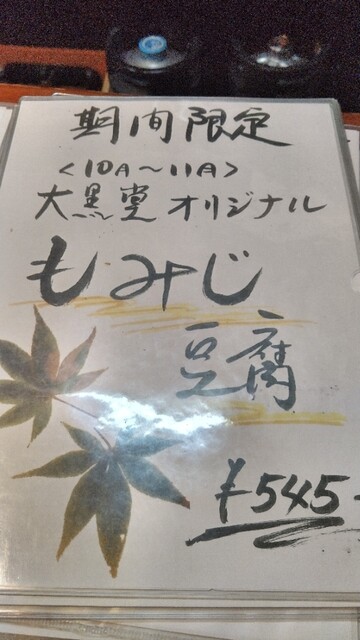 期間限定
<10月~11月>
大黒堂オリジナル
もみじ
豆腐
¥545-